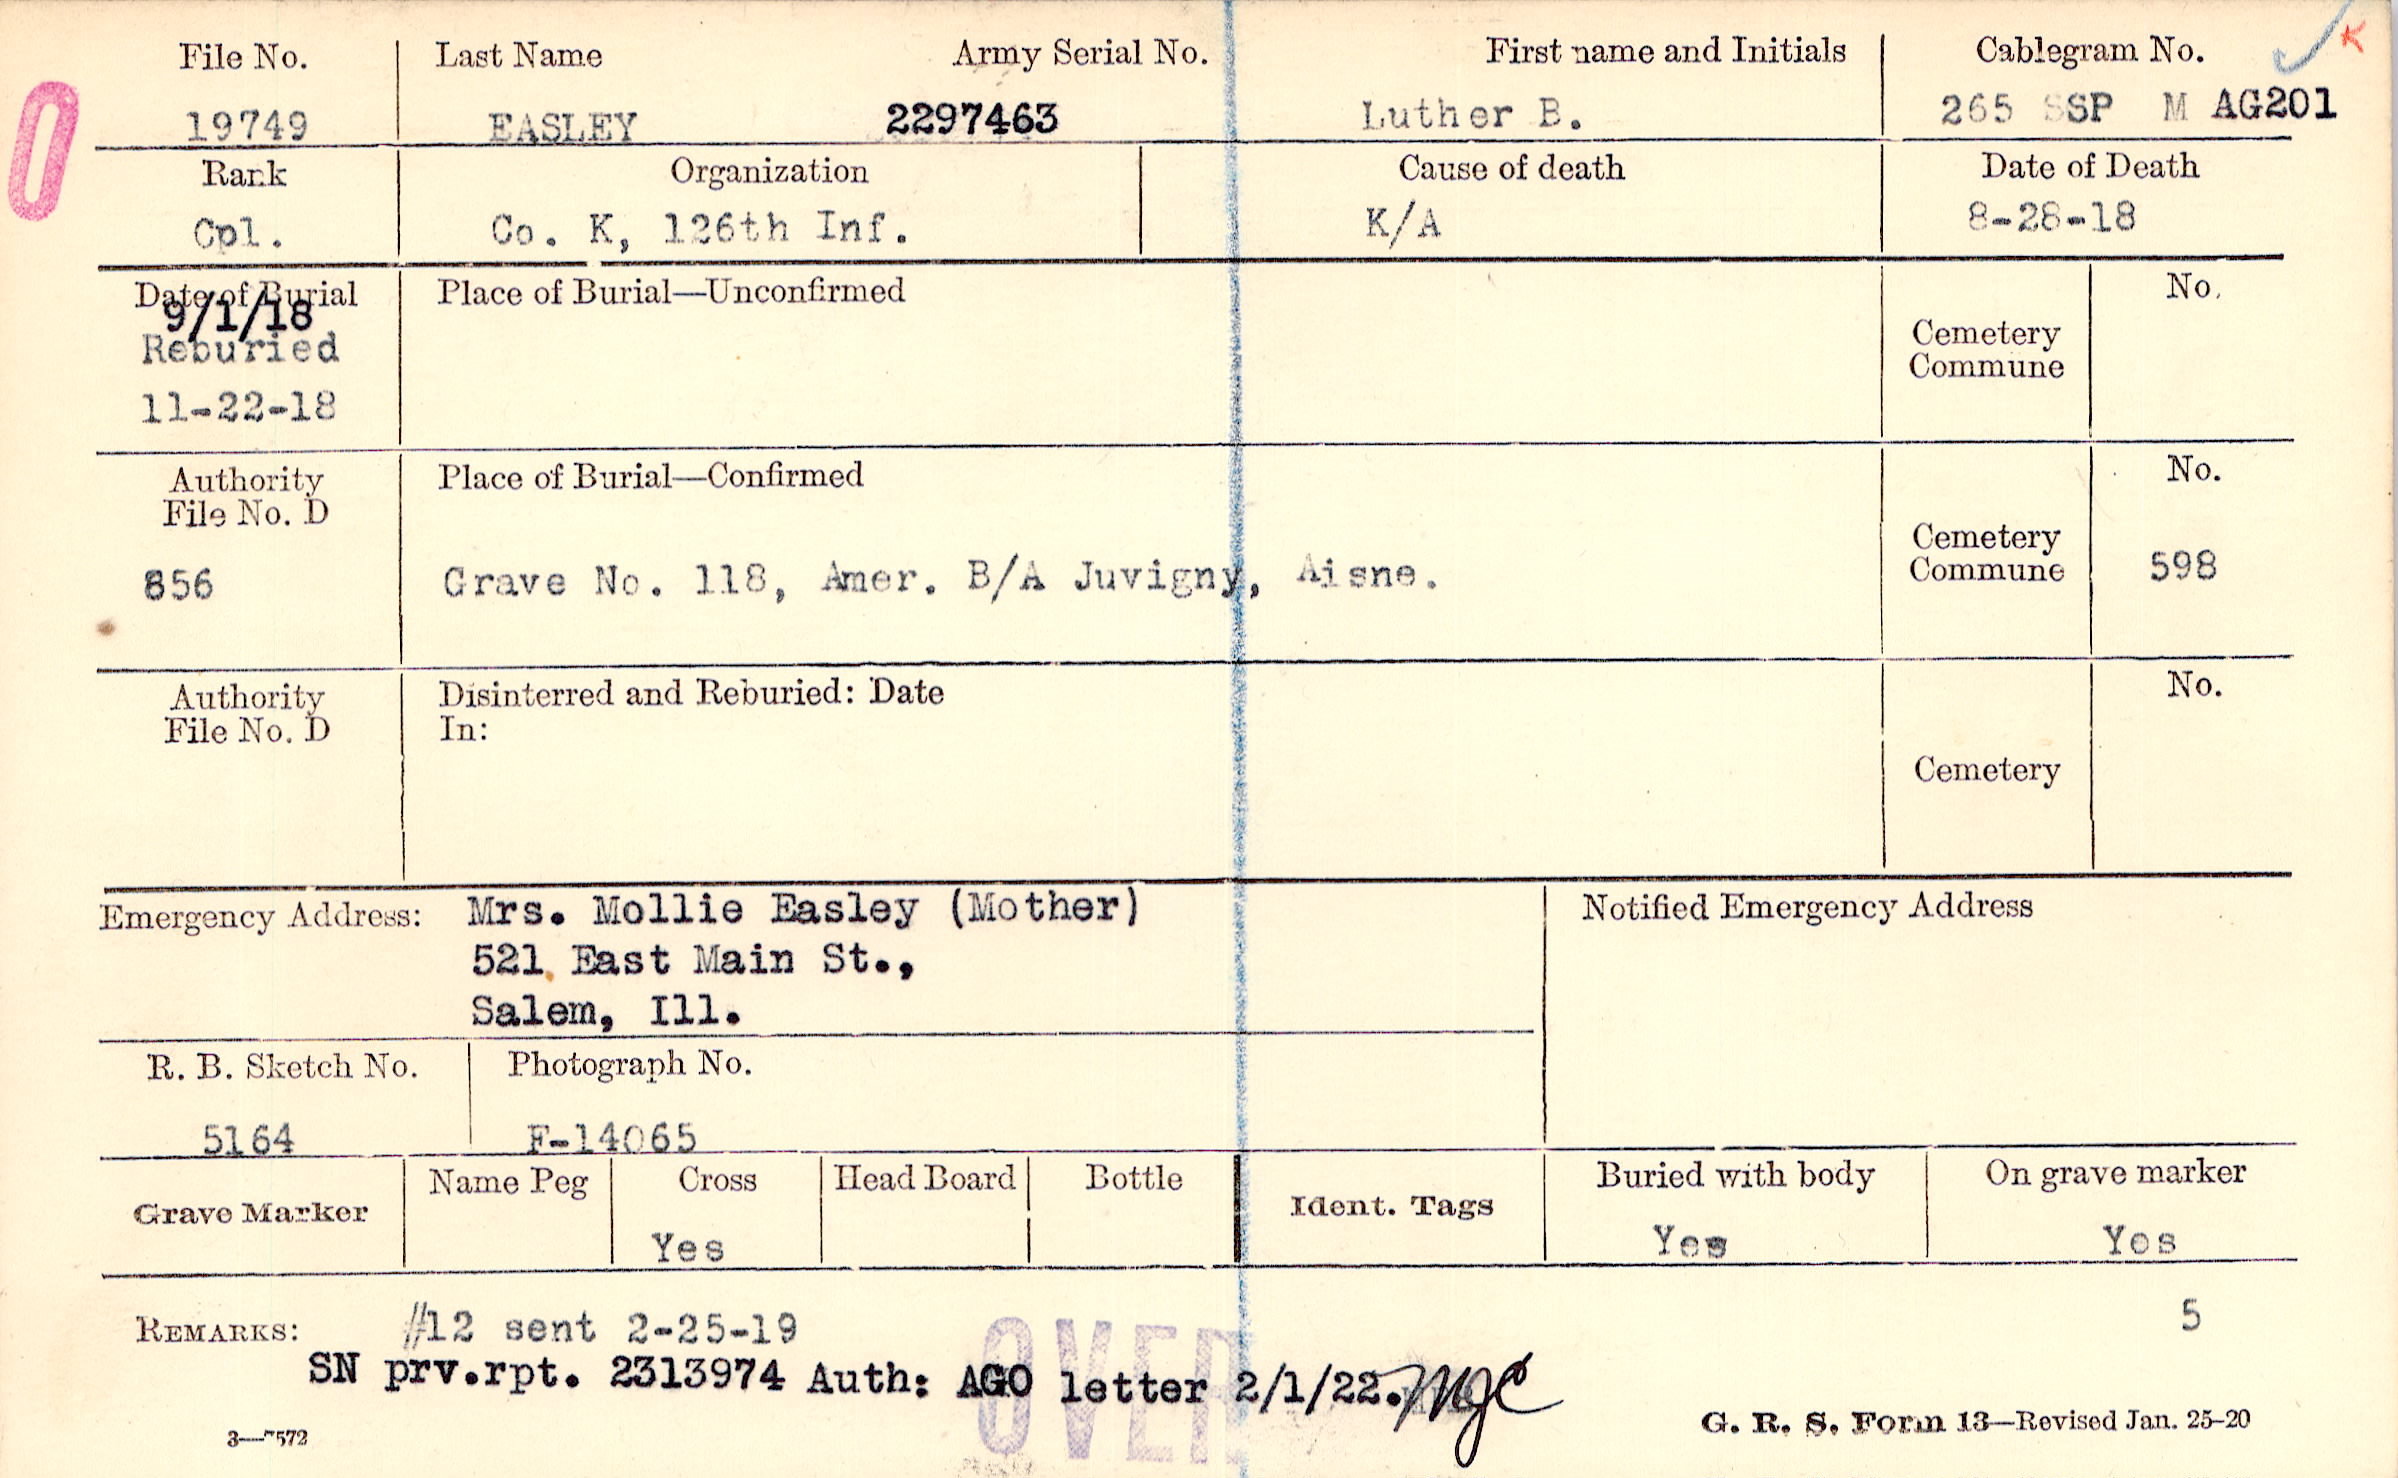 File No.
Last Name
Army Serial No.
First name and Initials
Cablegram No.
K
O
19749
EASLEY
2297463
Luther B.
265 SSP M AG201
Rank
Organization
Cause of death
Date of Death
Cpl.
Co. K, 126th Inf.
K/A
8-28-18
Date of Burial
9/1/18
Reburied
11-22-18
Place of Burial—Unconfirmed
Cemetery
Commune
No.
Authority
File No. D
856
Place of Burial—Confirmed
Grave No. 118, Amer. B/A Juvigny, Aisne.
Cemetery
Commune
No.
598
Authority
File No. D
Disinterred and Reburied: Date
In:
Cemetery
No.
Emergency Address:
Mrs. Mollie Easley (Mother)
521 East Main St.,
Salem, Ill.
Notified Emergency Address
R. B. Sketch No.
Photograph No.
5164
F-14065
Grave Marker
Name Peg
Cross
Yes
Head Board
Bottle
Ident. Tags
Buried with body
Yes
On grave marker
Yes
REMARKS:
#12 sent 2-25-19
5
SN prv.rpt. 2313974 Auth: AGO letter 2/1/22.
OVER
3—7572
G. R. S. Form 13—Revised Jan. 25-20